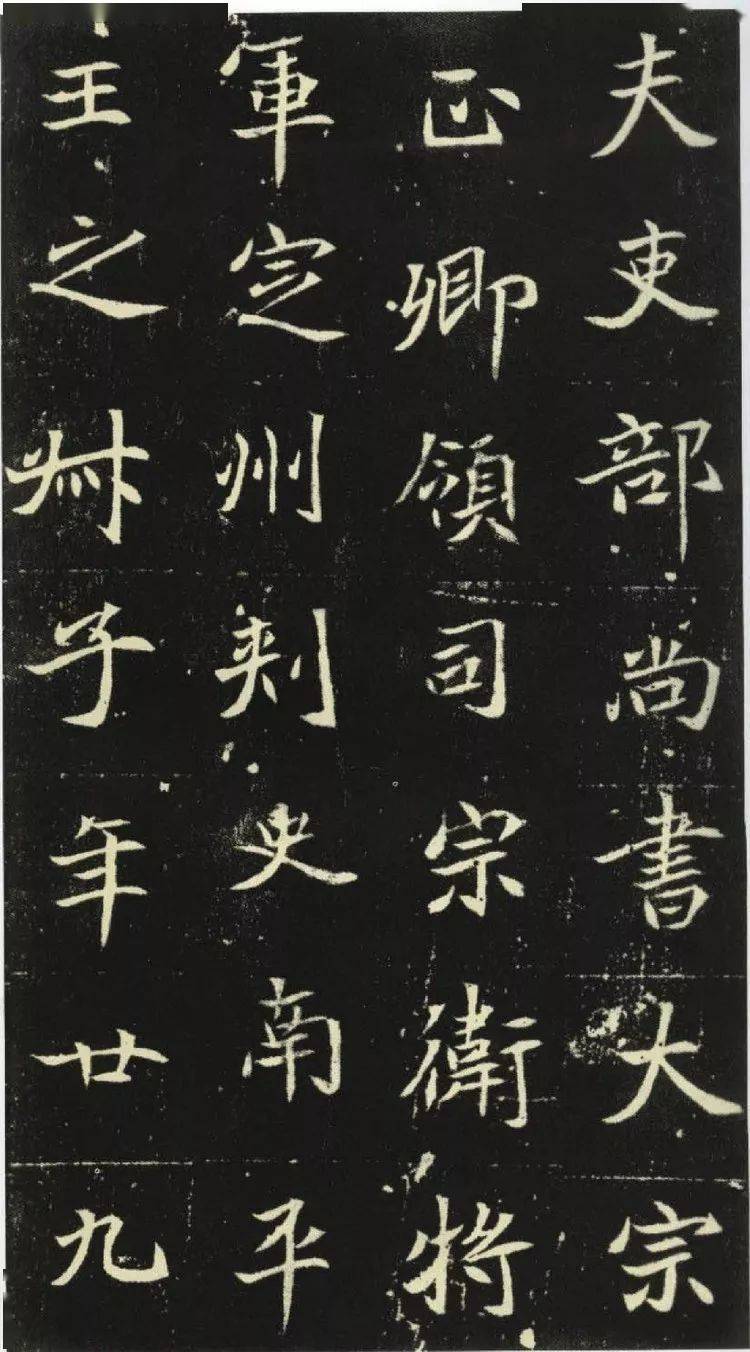 夫吏部尚書大宗
正卿領司宗衛將
軍定州刾史南平
主之子年廿九